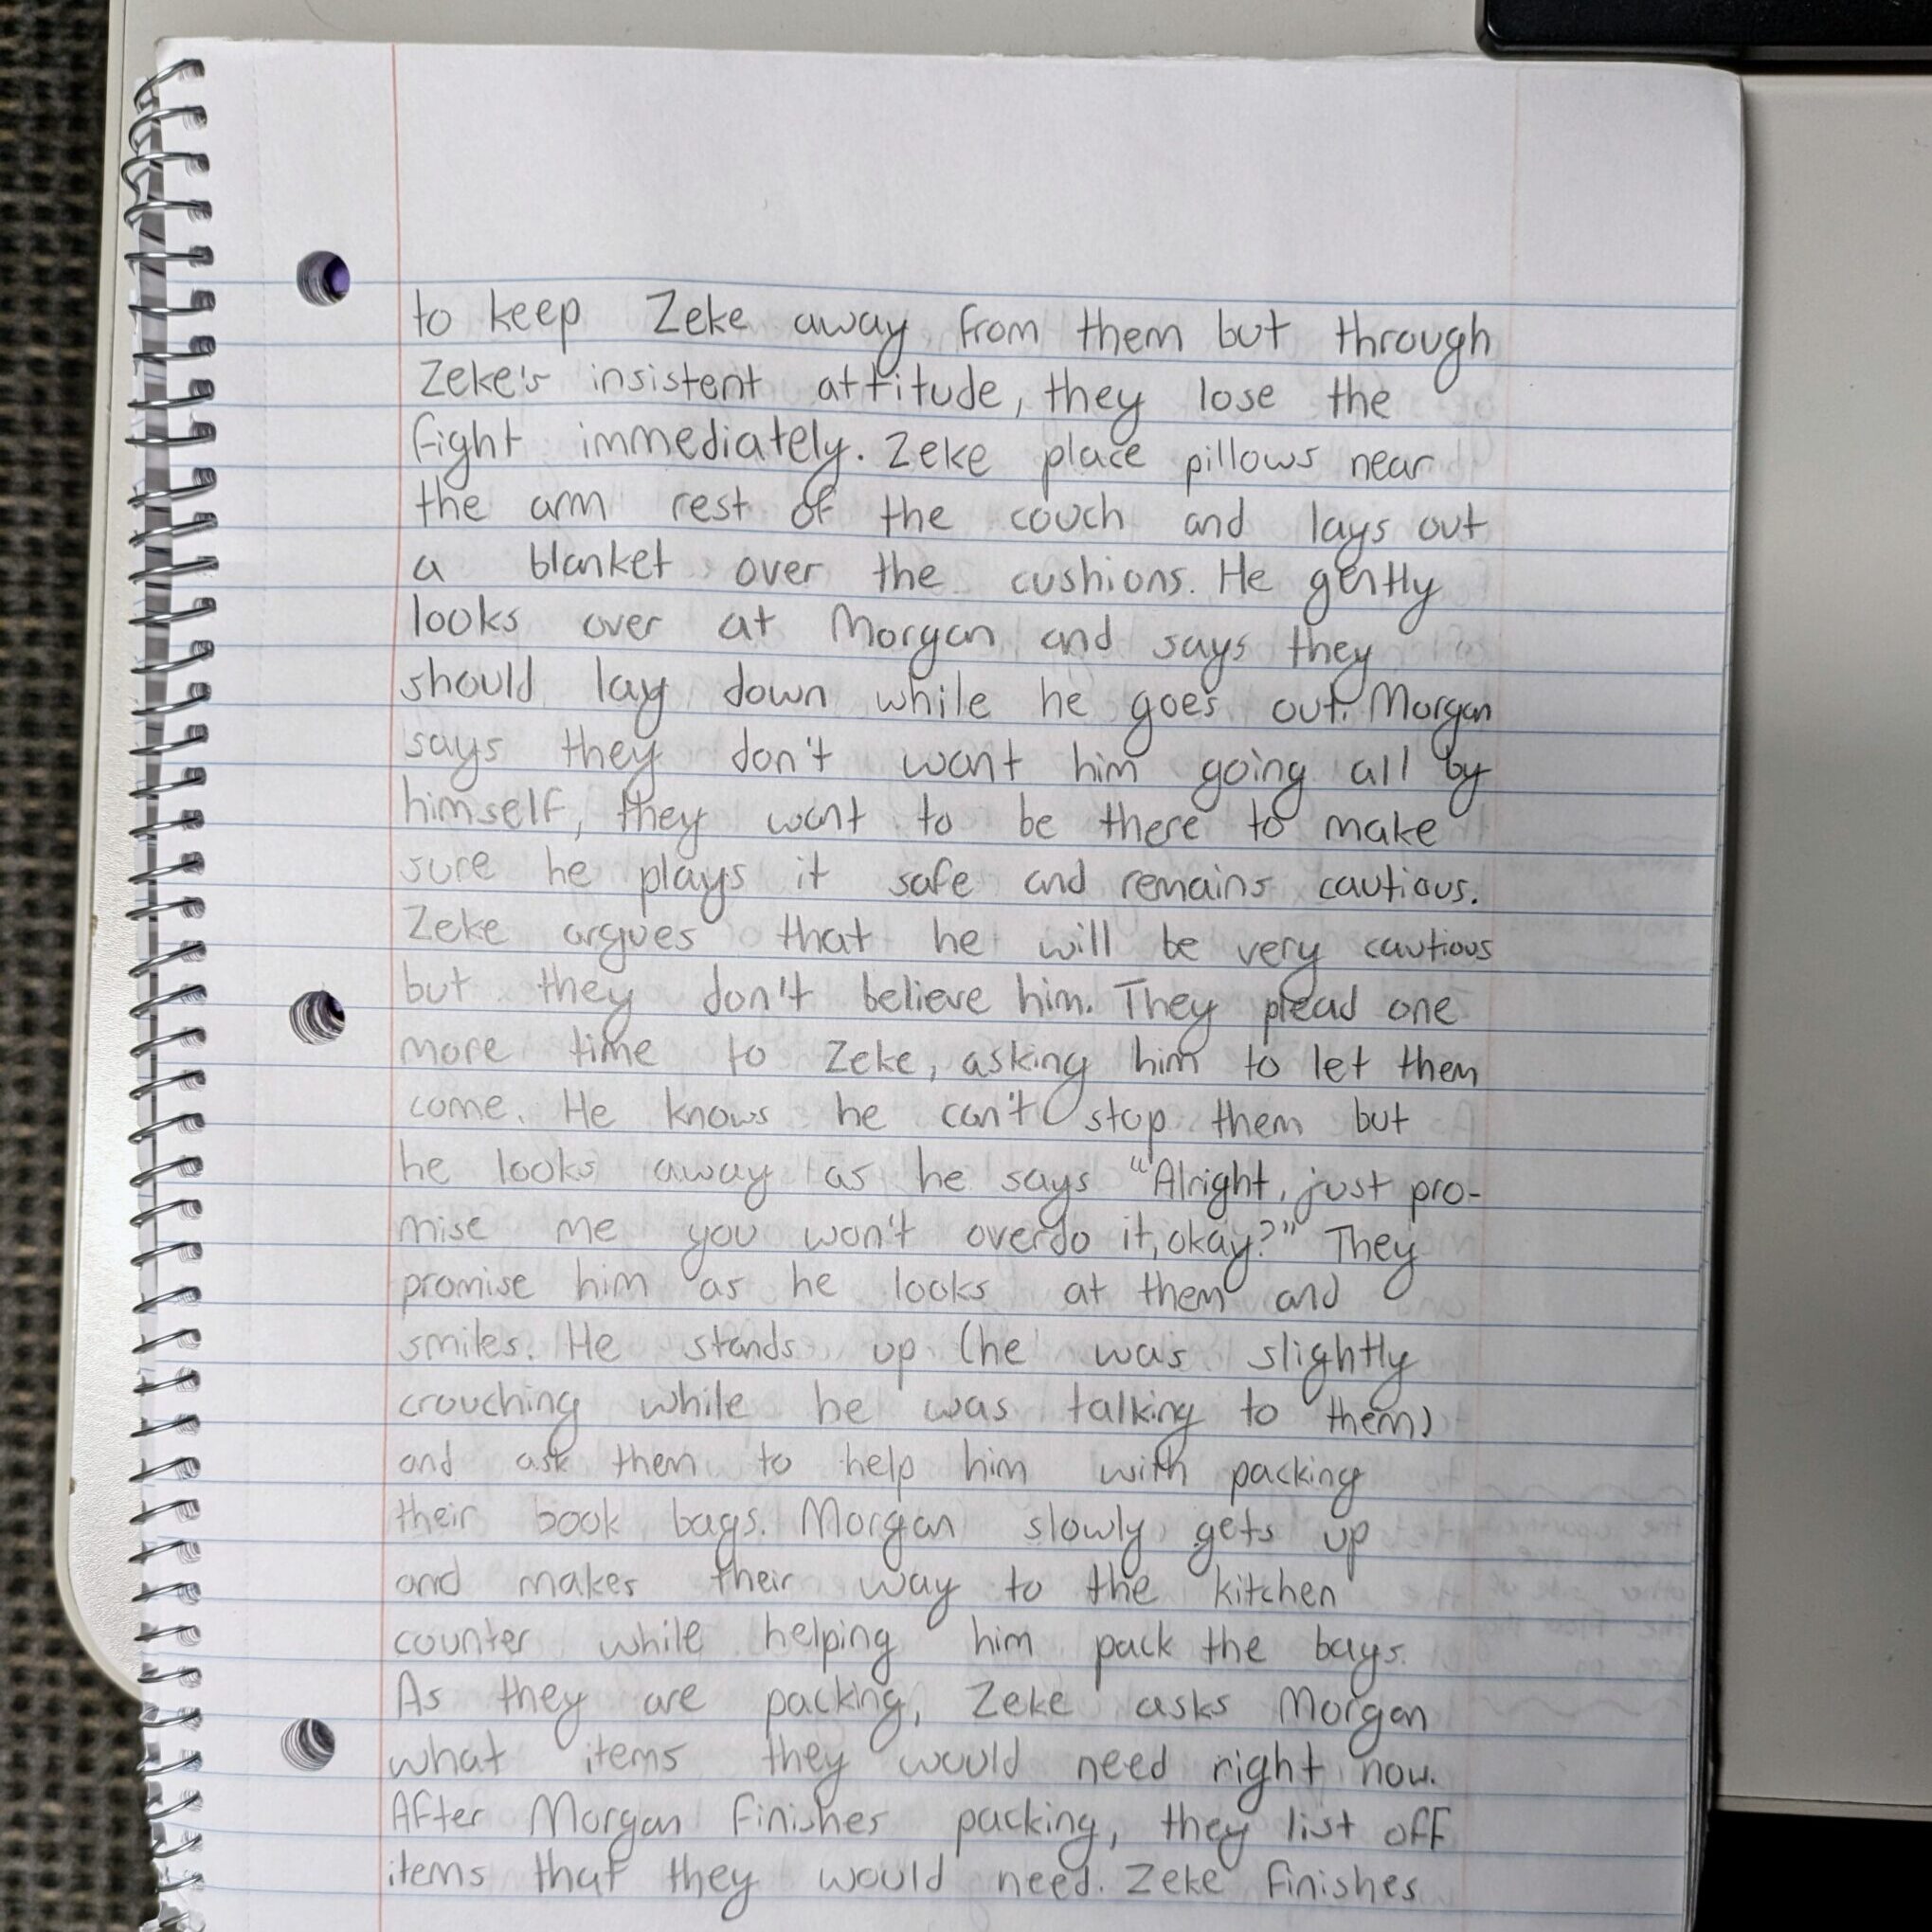 to keep Zeke away from them but through
Zeke's insistent attitude, they lose the
fight immediately. Zeke place pillows near
the arm rest of the couch and lays out
a blanket over the cushions. He gently
looks over at Morgan and says they
should lay down while he goes out. Morgan
says they don't want him going all by
himself, they want to be there to make
sure he plays it safe and remains cautious.
Zeke argues that he will be very cautious
but they don't believe him. They plead one
more time to Zeke, asking him to let them
come. He knows he can't stop them but
he looks away as he says "Alright, just pro-
mise me you won't overdo it, okay?" They
promise him as he looks at them and
smiles. He stands up (he was slightly
crouching while he was talking to them)
and ask them to help him with packing
their book bags. Morgan slowly gets up
and makes their way to the kitchen
counter while helping him pack the bags.
As they are packing, Zeke asks Morgan
what items they would need right now.
After Morgan finishes packing, they list off
items that they would need. Zeke finishes